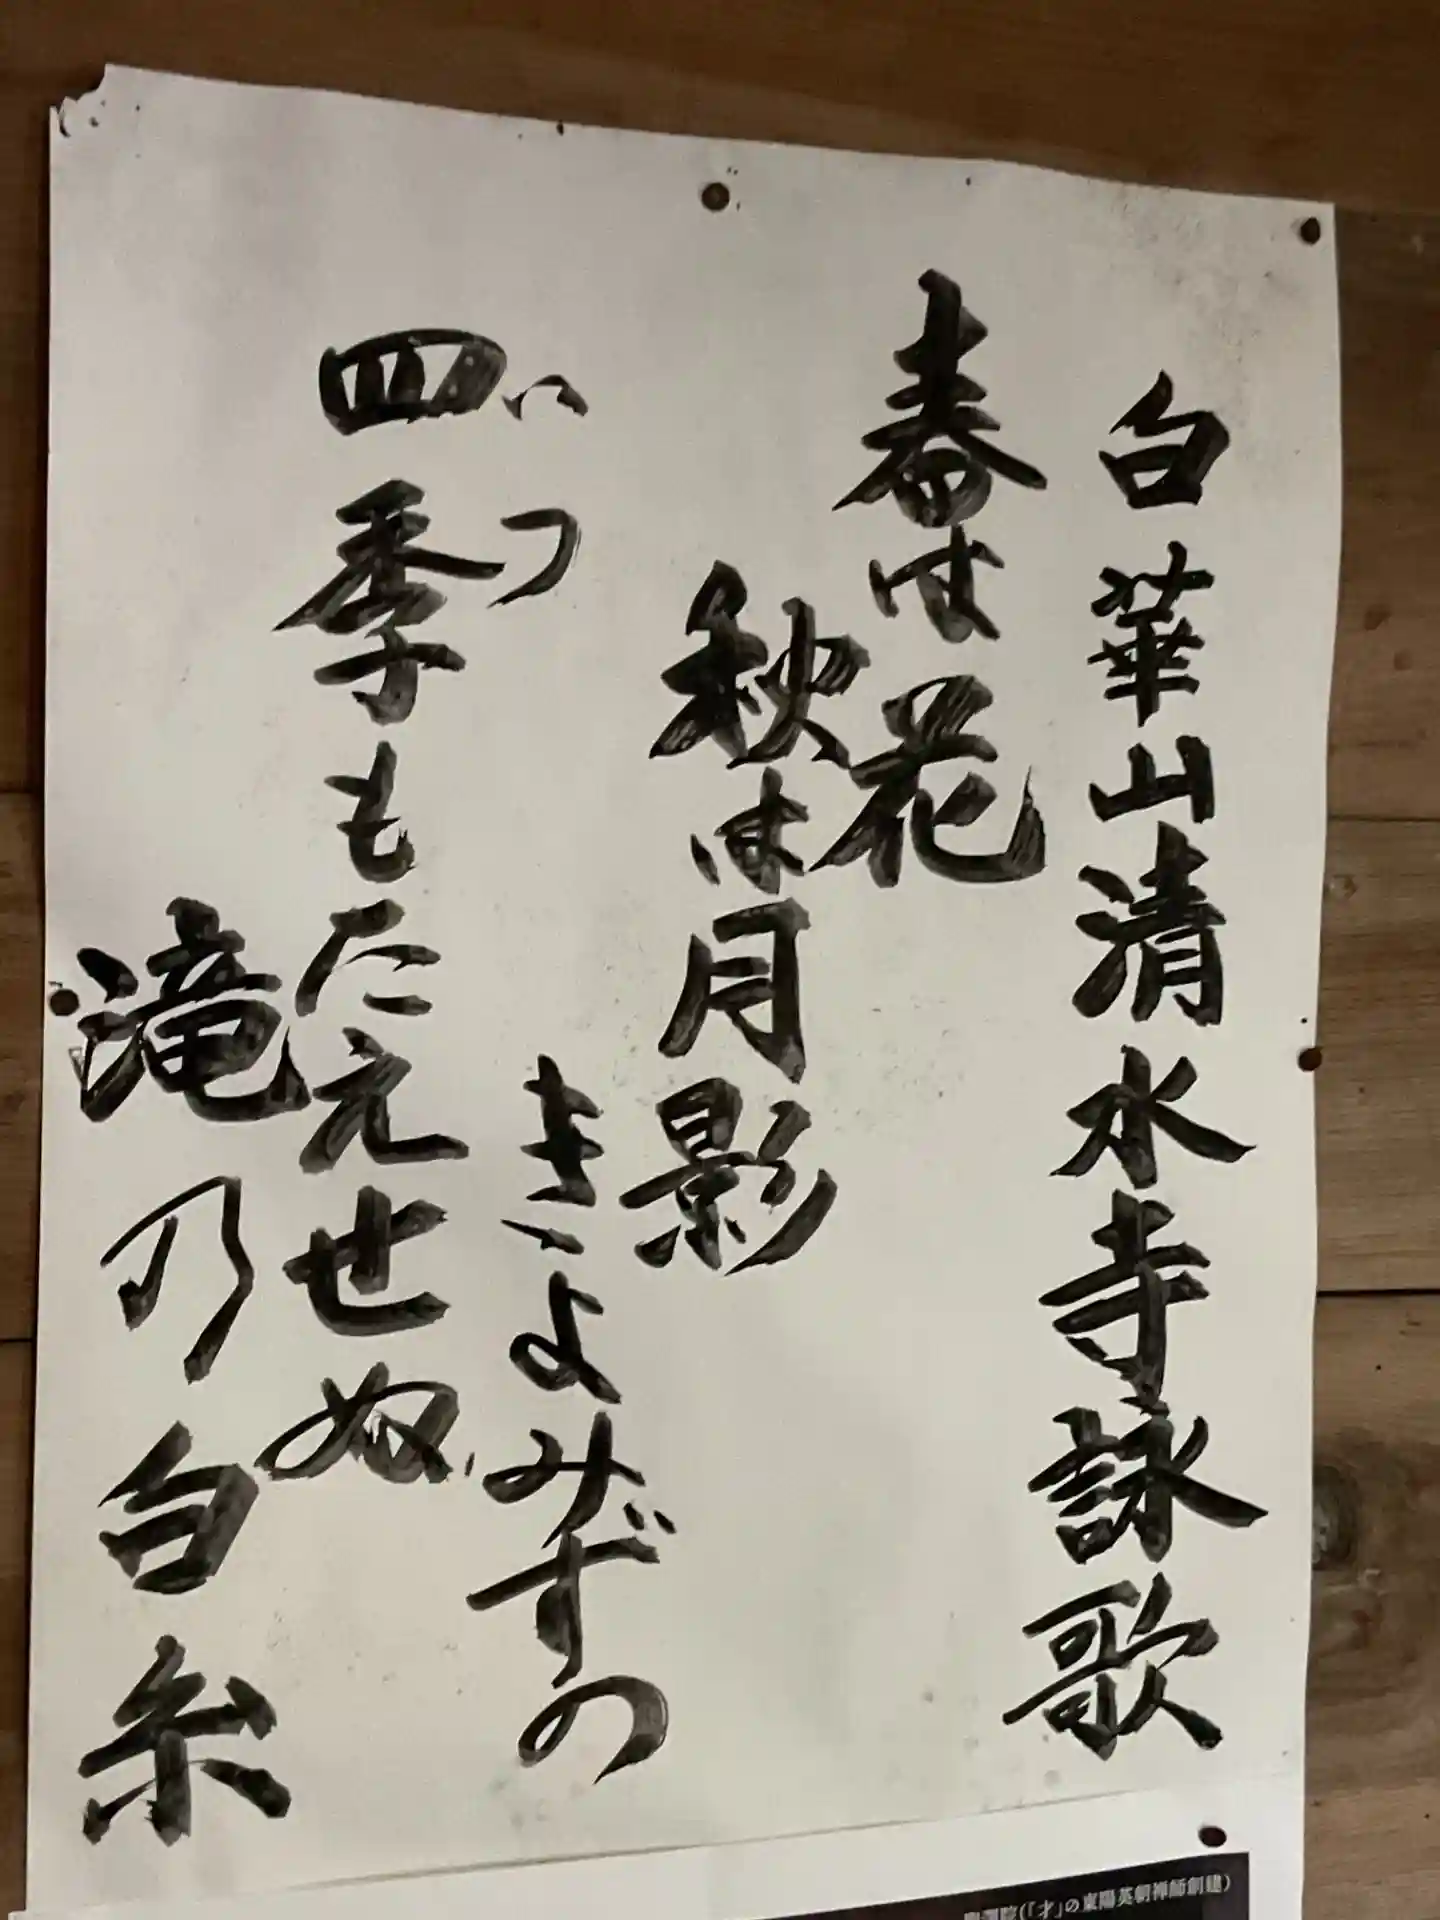 白華山清水寺詠歌
春は花
秋は月影
きよみずの
いつ
四季もたえせぬ
滝乃白糸
(「才」の東陽英朝禅師創建)